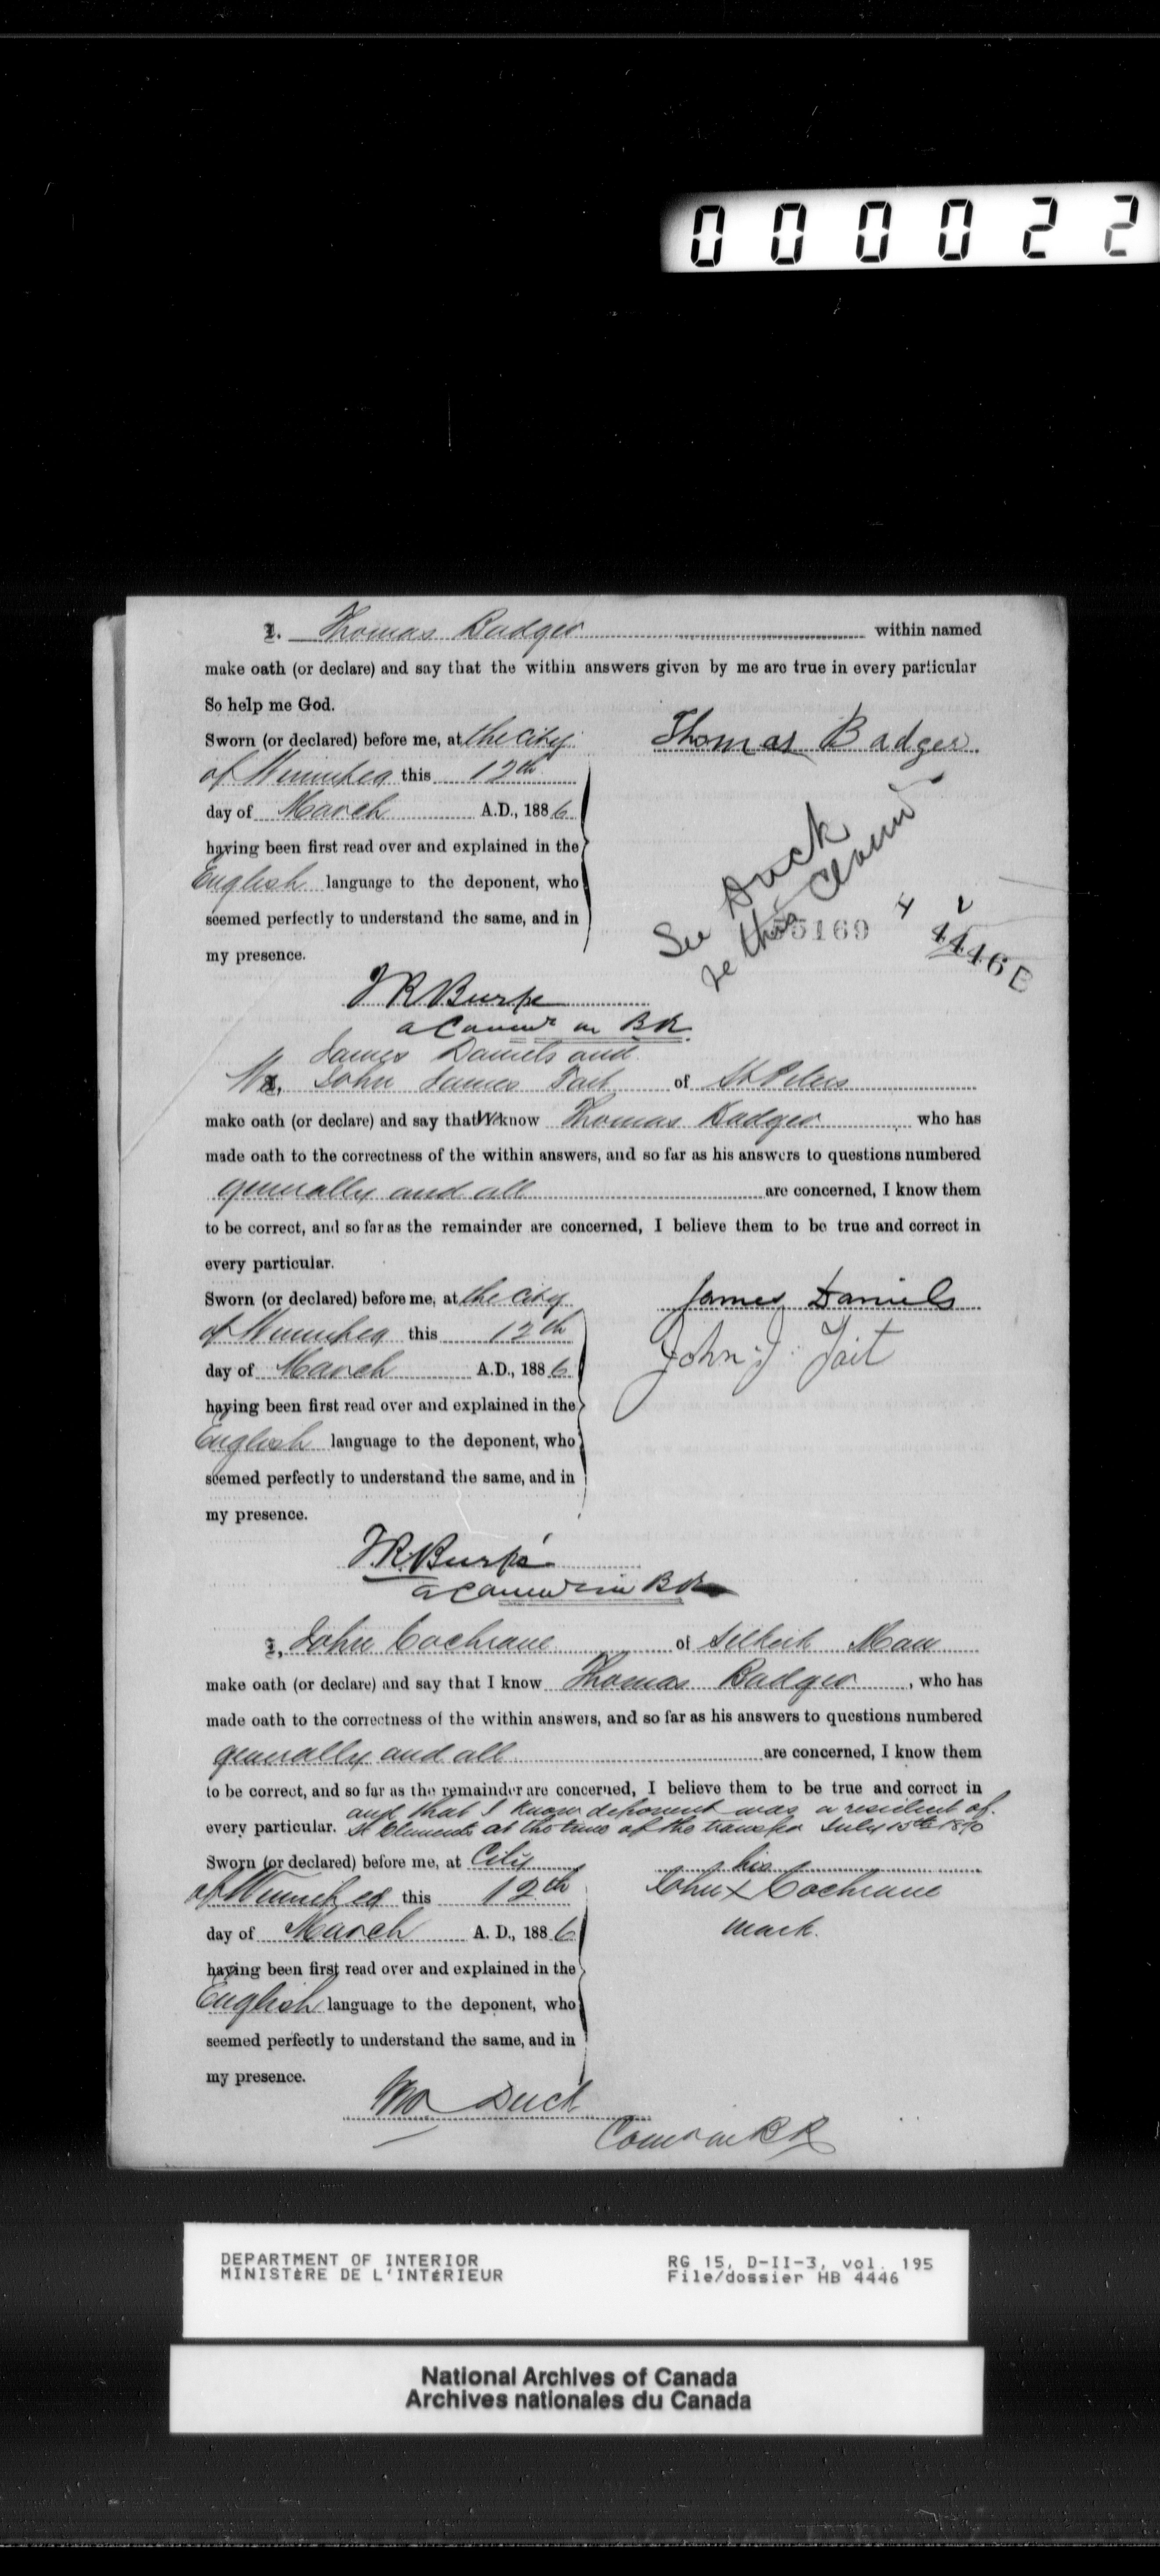 000022
I, Thomas Badger within named
make oath (or declare) and say that the within answers given by me are true in every particular
So help me God.
Sworn (or declared) before me, at the city
Thomas Badger
of Winnipeg this 12th
day of March A.D., 1886
having been first read over and explained in the
English language to the deponent, who
seemed perfectly to understand the same, and in
my presence.
See Duck
re this Claim
55169
4 2
4446 B
T R Burpé
a Commr in BR
James Daniels and
We, John James Tait of St Peters
make oath (or declare) and say that We know Thomas Badger who has
made oath to the correctness of the within answers, and so far as his answers to questions numbered
generally and all are concerned, I know them
to be correct, and so far as the remainder are concerned, I believe them to be true and correct in
every particular.
Sworn (or declared) before me, at the city
James Daniels
of Winnipeg this 12th
John J. Tait
day of March A.D., 1886
having been first read over and explained in the
English language to the deponent, who
seemed perfectly to understand the same, and in
my presence.
T.R. Burpé
a Commr in BR
I, John Cochrane of Selkirk Man
make oath (or declare) and say that I know Thomas Badger, who has
made oath to the correctness of the within answers, and so far as his answers to questions numbered
generally and all are concerned, I know them
to be correct, and so far as the remainder are concerned, I believe them to be true and correct in
and that I know deponent was a resident of
every particular. St Clements at the time of the transfer July 15th 1870
Sworn (or declared) before me, at City
his
of Winnipeg this 12th
John X Cochrane
day of March A. D., 1886
mark.
having been first read over and explained in the
English language to the deponent, who
seemed perfectly to understand the same, and in
my presence.
Duck
Com in BR
DEPARTMENT OF INTERIOR
MINISTÈRE DE L'INTÉRIEUR
RG 15, D-II-3, vol. 195
File/dossier HB 4446
National Archives of Canada
Archives nationales du Canada